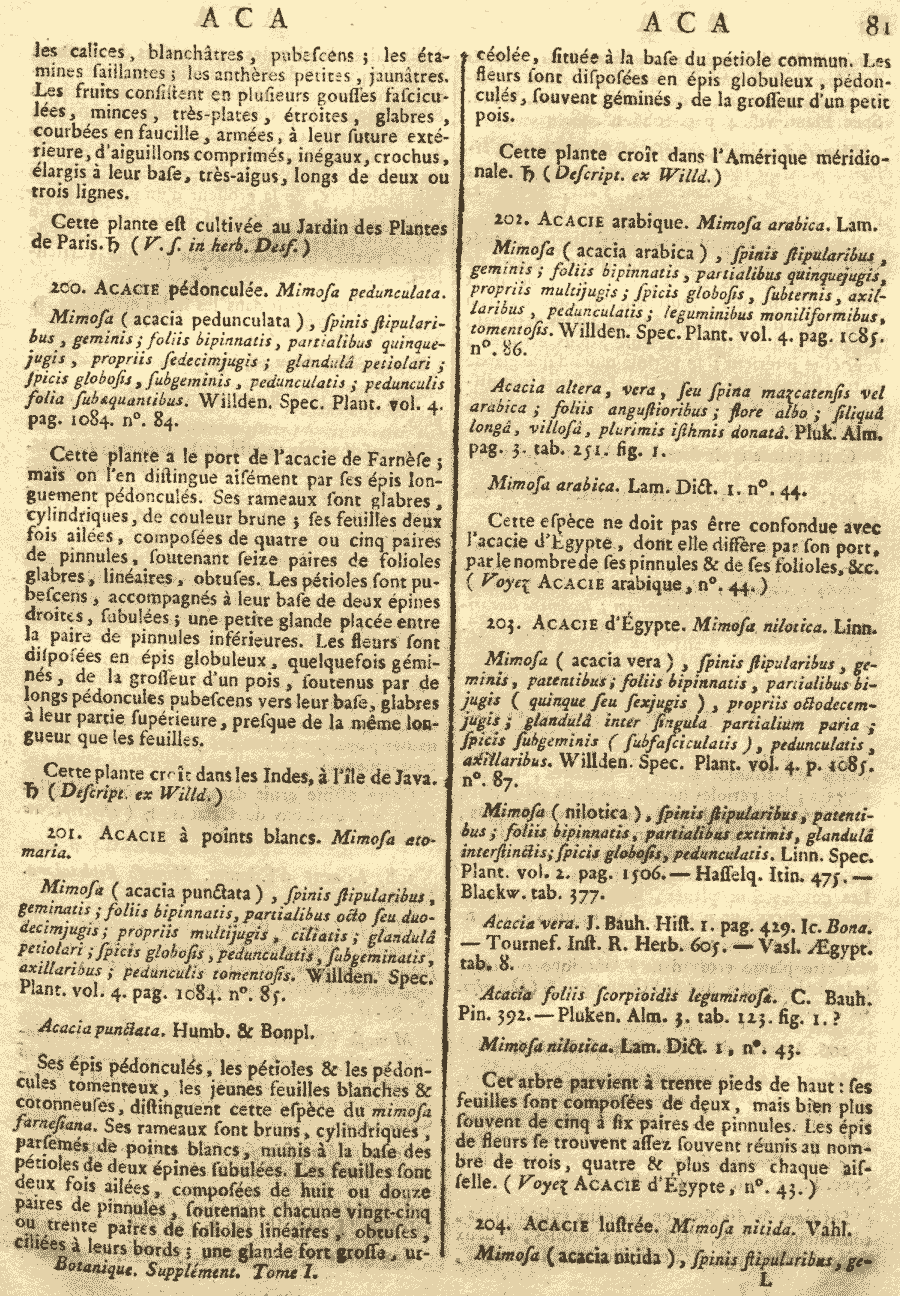 A C A
les calices, blanchâtres, pubeſcens ; les éta-
mines ſaillantes ; les anthères petites, jaunâtres.
Les fruits conſiſtent en pluſieurs gouſſes faſcicu-
lées, minces, très-plates, étroites, glabres,
courbées en faucille, armées, à leur ſuture exté-
rieure, d'aiguillons comprimés, inégaux, crochus,
élargis à leur baſe, très-aigus, longs de deux ou
trois lignes.
Cette plante eſt cultivée au Jardin des Plantes
de Paris. ♄ (V. ſ. in herb. Desf.)
200. ACACIE pédonculée. Mimoſa pedunculata.
Mimoſa (acacia pedunculata), ſpinis ſtipulari-
bus, geminis ; foliis bipinnatis, partialibus quinque-
jugis, propriis ſedecimjugis ; glandulâ petiolari ;
ſpicis globoſis, ſubgeminis, pedunculatis ; pedunculis
folia ſubæquantibus. Willden. Spec. Plant. vol. 4.
pag. 1084. n°. 84.
Cette plante a le port de l'acacie de Farnèſe ;
mais on l'en diſtingue aiſément par ſes épis lon-
guement pédonculés. Ses rameaux ſont glabres,
cylindriques, de couleur brune ; ſes feuilles deux
fois ailées, compoſées de quatre ou cinq paires
de pinnules, ſoutenant ſeize paires de folioles
glabres, linéaires, obtuſes. Les pétioles ſont pu-
beſcens, accompagnés à leur baſe de deux épines
droites, ſubulées ; une petite glande placée entre
la paire de pinnules inférieures. Les fleurs ſont
diſpoſées en épis globuleux, quelquefois gémi-
nés, de la groſſeur d'un pois, ſoutenus par de
longs pédoncules pubeſcens vers leur baſe, glabres
à leur partie ſupérieure, preſque de la même lon-
gueur que les feuilles.
Cette plante croît dans les Indes, à l'île de Java.
♄ (Deſcript. ex Willd.)
201. ACACIE à points blancs. Mimoſa ato-
maria.
Mimoſa (acacia punctata), ſpinis ſtipularibus,
geminatis ; foliis bipinnatis, partialibus octo ſeu duo-
decimjugis ; propriis multijugis, ciliatis ; glandulâ
petiolari ; ſpicis globoſis, pedunculatis, ſubgeminatis,
axillaribus ; pedunculis tomentoſis. Willden. Spec.
Plant. vol. 4. pag. 1084. n°. 85.
Acacia punctata. Humb. & Bonpl.
Ses épis pédonculés, les pétioles & les pédon-
cules tomenteux, les jeunes feuilles blanches &
cotonneuſes, diſtinguent cette eſpèce du mimoſa
farneſiana. Ses rameaux ſont bruns, cylindriques,
parſemés de points blancs, munis à la baſe des
pétioles de deux épines ſubulées. Les feuilles ſont
deux fois ailées, compoſées de huit ou douze
paires de pinnules, ſoutenant chacune vingt-cinq
ou trente paires de folioles linéaires, obtuſes,
ciliées à leurs bords ; une glande fort groſſe, ur-
Botanique. Supplément. Tome I.
A C A 81
céolée, ſituée à la baſe du pétiole commun. Les
fleurs ſont diſpoſées en épis globuleux, pédon-
culés, ſouvent géminés, de la groſſeur d'un petit
pois.
Cette plante croît dans l'Amérique méridio-
nale. ♄ (Deſcript. ex Willd.)
202. ACACIE arabique. Mimoſa arabica. Lam.
Mimoſa (acacia arabica), ſpinis ſtipularibus,
geminis ; foliis bipinnatis, partialibus quinquejugis,
propriis multijugis ; ſpicis globoſis, ſubternis, axil-
laribus, pedunculatis ; leguminibus moniliformibus,
tomentoſis. Willden. Spec. Plant. vol. 4. pag. 1085.
n°. 86.
Acacia altera, vera, ſeu ſpina mazcatenſis vel
arabica ; foliis anguſtioribus ; flore albo ; ſiliquâ
longâ, villoſâ, plurimis iſthmis donatâ. Pluk. Alm.
pag. 3. tab. 251. fig. 1.
Mimoſa arabica. Lam. Dict. 1. n°. 44.
Cette eſpèce ne doit pas être confondue avec
l'acacie d'Égypte, dont elle diffère par ſon port,
par le nombre de ſes pinnules & de ſes folioles, &c.
(Voyez ACACIE arabique, n°. 44.)
203. ACACIE d'Égypte. Mimoſa nilotica. Linn.
Mimoſa (acacia vera), ſpinis ſtipularibus, ge-
minis, patentibus ; foliis bipinnatis, partialibus bi-
jugis (quinque ſeu ſexjugis), propriis octodecem-
jugis ; glandulâ inter ſingula partialium paria ;
ſpicis ſubgeminis (ſubfaſciculatis), pedunculatis,
axillaribus. Willden. Spec. Plant. vol. 4. p. 1085.
n°. 87.
Mimoſa (nilotica), ſpinis ſtipularibus, patenti-
bus ; foliis bipinnatis, partialibus extimis, glandulâ
interſtinctis ; ſpicis globoſis, pedunculatis. Linn. Spec.
Plant. vol. 2. pag. 1506. — Haſſelq. Itin. 475. —
Blackw. tab. 377.
Acacia vera. J. Bauh. Hiſt. 1. pag. 429. Ic. Bona.
— Tournef. Inſt. R. Herb. 605. — Vasl. Ægypt.
tab. 8.
Acacia foliis ſcorpioidis leguminoſa. C. Bauh.
Pin. 392. — Pluken. Alm. 3. tab. 123. fig. 1. ?
Mimoſa nilotica. Lam. Dict. 1, n°. 43.
Cet arbre parvient à trente pieds de haut : ſes
feuilles ſont compoſées de deux, mais bien plus
ſouvent de cinq à ſix paires de pinnules. Les épis
de fleurs ſe trouvent aſſez ſouvent réunis au nom-
bre de trois, quatre & plus dans chaque aiſ-
ſelle. (Voyez ACACIE d'Égypte, n°. 43.)
204. ACACIE luſtrée. Mimoſa nitida. Vahl.
Mimoſa (acacia nitida), ſpinis ſtipularibus, ge-
L